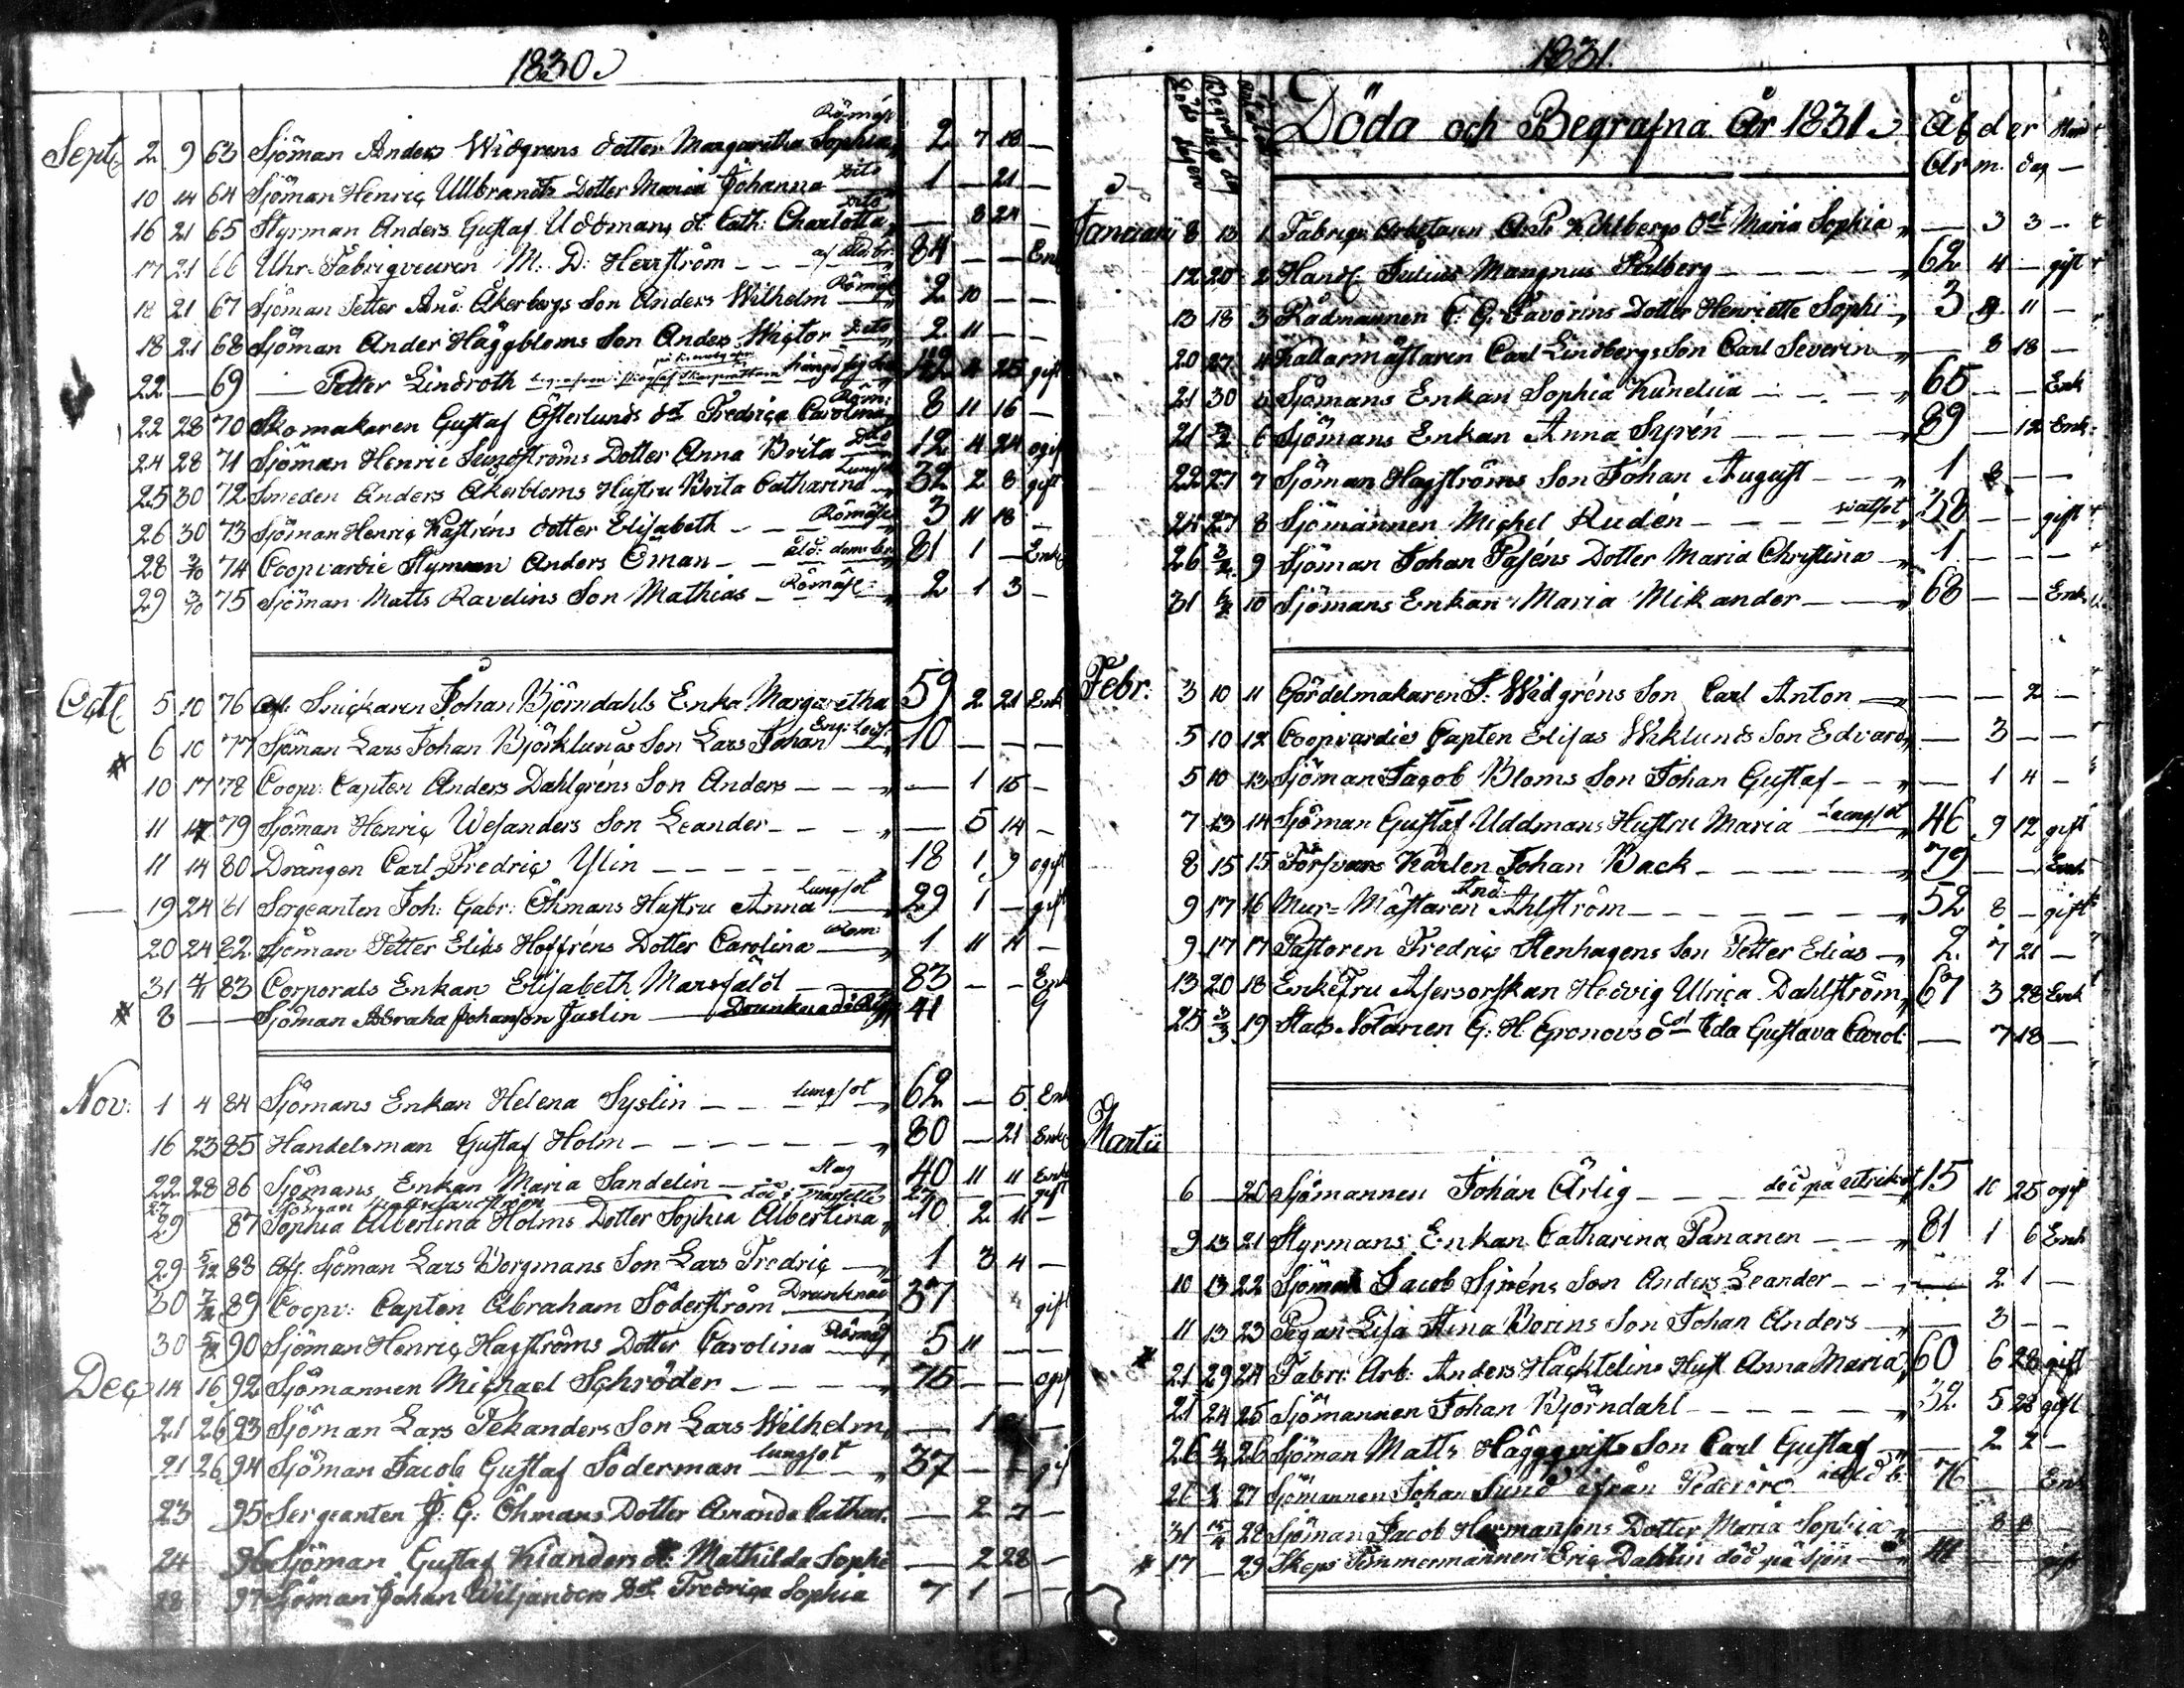 1830
Sept. 2 9 63 Sjöman Anders Widgrens dotter Margaretha Sophia 2 7 18 —
10 14 64 Sjöman Henric Ullbrandts Dotter Maria Johanna dito 1 — 21 —
16 21 65 Styrman Anders Gustaf Uddmans dt Cath: Charlotta dito — 8 24 —
17 21 66 Uhr-Fabriqveuren M: D: Herrström — — af åld:br: 84 — — Enk
18 21 67 Sjöman Petter And: Åkerbergs Son Anders Wilhelm 2 10 — —
18 21 68 Sjöman Ander Häggbloms Son Anders Wictor dito 2 11 — —
22 — 69 — Petter Lindroth 4 25 gift
22 28 70 Skomakaren Gustaf Österlunds dt Fredrica Carolina 8 11 16 —
24 28 71 Sjöman Henric Sundströms Dotter Anna Brita dito 12 4 24 ogift
25 30 72 Smeden Anders Åkerbloms Hustru Brita Catharina 32 2 8 gift
26 30 73 Sjöman Henric Kastréns dotter Elisabeth — — 3 11 18 —
28 3/10 74 Coopvardie Styrman Anders Öman — — 81 1 — Enkl
29 3/10 75 Sjöman Matts Ravelins Son Mathias — 2 1 3 —
Oct. 5 10 76 Afl. Snickaren Johan Björndahls Enka Margaretha 59 2 21 Enk
6 10 77 Sjöman Lars Johan Björklunds Son Lars Johan 10 — — —
10 17 78 Coopv: Capten Anders Dahlgréns Son Anders — — — — 1 15 —
11 17 79 Sjöman Henric Wesanders Son Leander — — — — 5 14 —
11 14 80 Drängen Carl Fredric Ylin — — — — 18 1 9 ogift
19 24 81 Sergeanten Joh: Gabr: Öhmans Hustru Anna lungsot 29 1 — gift
20 24 82 Sjöman Petter Elias Hoffréns Dotter Carolina 1 11 11 —
31 4/11 83 Corporals Enkan Elisabeth Marsfält — 83 — — Enk
8 — — Sjöman Abraha Johanson Juslin — Drunknade 41 G
Nov: 1 4 84 Sjömans Enkan Helena Syslin — — lungsot 62 — 5 Enk
16 23 85 Handelsman Gustaf Holm — — — — 80 — 21 Enkl
22 28 86 Sjömans Enkan Maria Sandelin — Slag 40 11 11 Enk
27 Sjöman död i Marseille 27 — — gift
29 87 Sophia Albertina Holms Dotter Sophia Albertina 10 2 11 —
29 5/12 88 Afl. Sjöman Lars Borgmans Son Lars Fredric — 1 3 4 —
30 7/12 89 Coopv: Capten Abraham Söderström Drunknad 37 gift
30 5/12 90 Sjöman Henric Hagströms Dotter Carolina 5 11 — —
Dec 14 16 92 Sjömannen Michael Schröder — — — — 75 — — ogif
21 26 93 Sjöman Lars Pekanders Son Lars Wilhelm — 1 —
21 26 94 Sjöman Jacob Gustaf Söderman lungsot 37 — — gif
23 95 Sergeanten J: G: Öhmans Dotter Amanda Cathar. — 2 7 —
24 96 Sjöman Gustaf Kianders dt: Mathilda Sophi — 2 28 —
28 97 Sjöman Johan Wiljanders Dt Fredrica Sophia 7 1 — —
1831.
Döda och Begrafna År 1831.
Ålder
År m. dag —
Januarii 8 13 1 Fabriqs Arbetaren A: P: Kihlbergs dt Maria Sophia — 3 3 —
12 20 2 Handl: Julius Mangnus Pihlberg — — — — 62 4 — gift
13 18 3 Rådmannen C: G: Favorins Dotter Henriette Sophi 3 9 11 —
20 27 4 Källarmästaren Carl Lindbergs Son Carl Severin — 8 18 —
21 30 5 Sjömans Enkan Sophia Kunelia — — — 65 — — Enk
21 2/2 6 Sjömans Enkan Anna Syrén — — — — 89 — 12 Enk
22 27 7 Sjöman Hagströms Son Johan August — — 1 8 — —
24 27 8 Sjömannen Michel Rudén — — — watsot 38 — — gift
26 3/2 9 Sjöman Johan Paséns Dotter Maria Christina — 1 — — —
31 6/2 10 Sjömans Enkan Maria Mikander — — 68 — — Enk
Febr: 3 10 11 Gördelmakaren J: Widgréns Son Carl Anton — — — 2 —
5 10 12 Coopvardie Capten Elisas Wiklunds Son Edvard — 3 — —
5 10 13 Sjöman Jacob Bloms Son Johan Gustaf — — — 1 4 —
7 13 14 Sjöman Gustaf Uddmans Hustru Maria Lungsot 46 9 12 gift
8 15 15 Försvars Karlen Johan Back — — — — 79 — — Enk
9 17 16 Mur-Mästaren And: Ahlström — — — — 52 8 — gift
9 17 17 Pastoren Fredric Stenhagens Son Petter Elias — 2 7 21 —
13 20 18 Enke Fru Assessorskan Hedvig Ulrica Dahlström 67 3 28 Enk
25 3/3 19 Stads Notarien G: H: Gronovs dt Eda Gustava Carol: — 7 18 —
Martii
6 — 20 Sjömannen Johan Ärlig — — — död på utrikes 15 10 25 ogif
9 13 21 Styrmans Enkan Catharina Pananen — — 81 1 6 Enk
10 13 22 Sjöman Jacob Siréns Son Anders Leander — — — 2 1 —
11 13 23 Pigan Lisa Stina Borins Son Johan Anders — — 3 — —
21 29 24 Fabri: Arb: Anders Häcktelins Hust Anna Maria 60 6 28 gift
21 24 25 Sjömannen Johan Björndahl — — — — 32 5 28 gift
26 4/4 26 Sjöman Matts Häggqvists Son Carl Gustaf — — 2 2 —
27 Sjömannen Johan Sund ifrån Pedersöre 76 — Enk
31 28 Sjöman Jacob Hermansons Dotter Maria Sophia — 8 8 —
17 — 29 Skeps Timmermannen Eric Dahlin död på sjön — gift